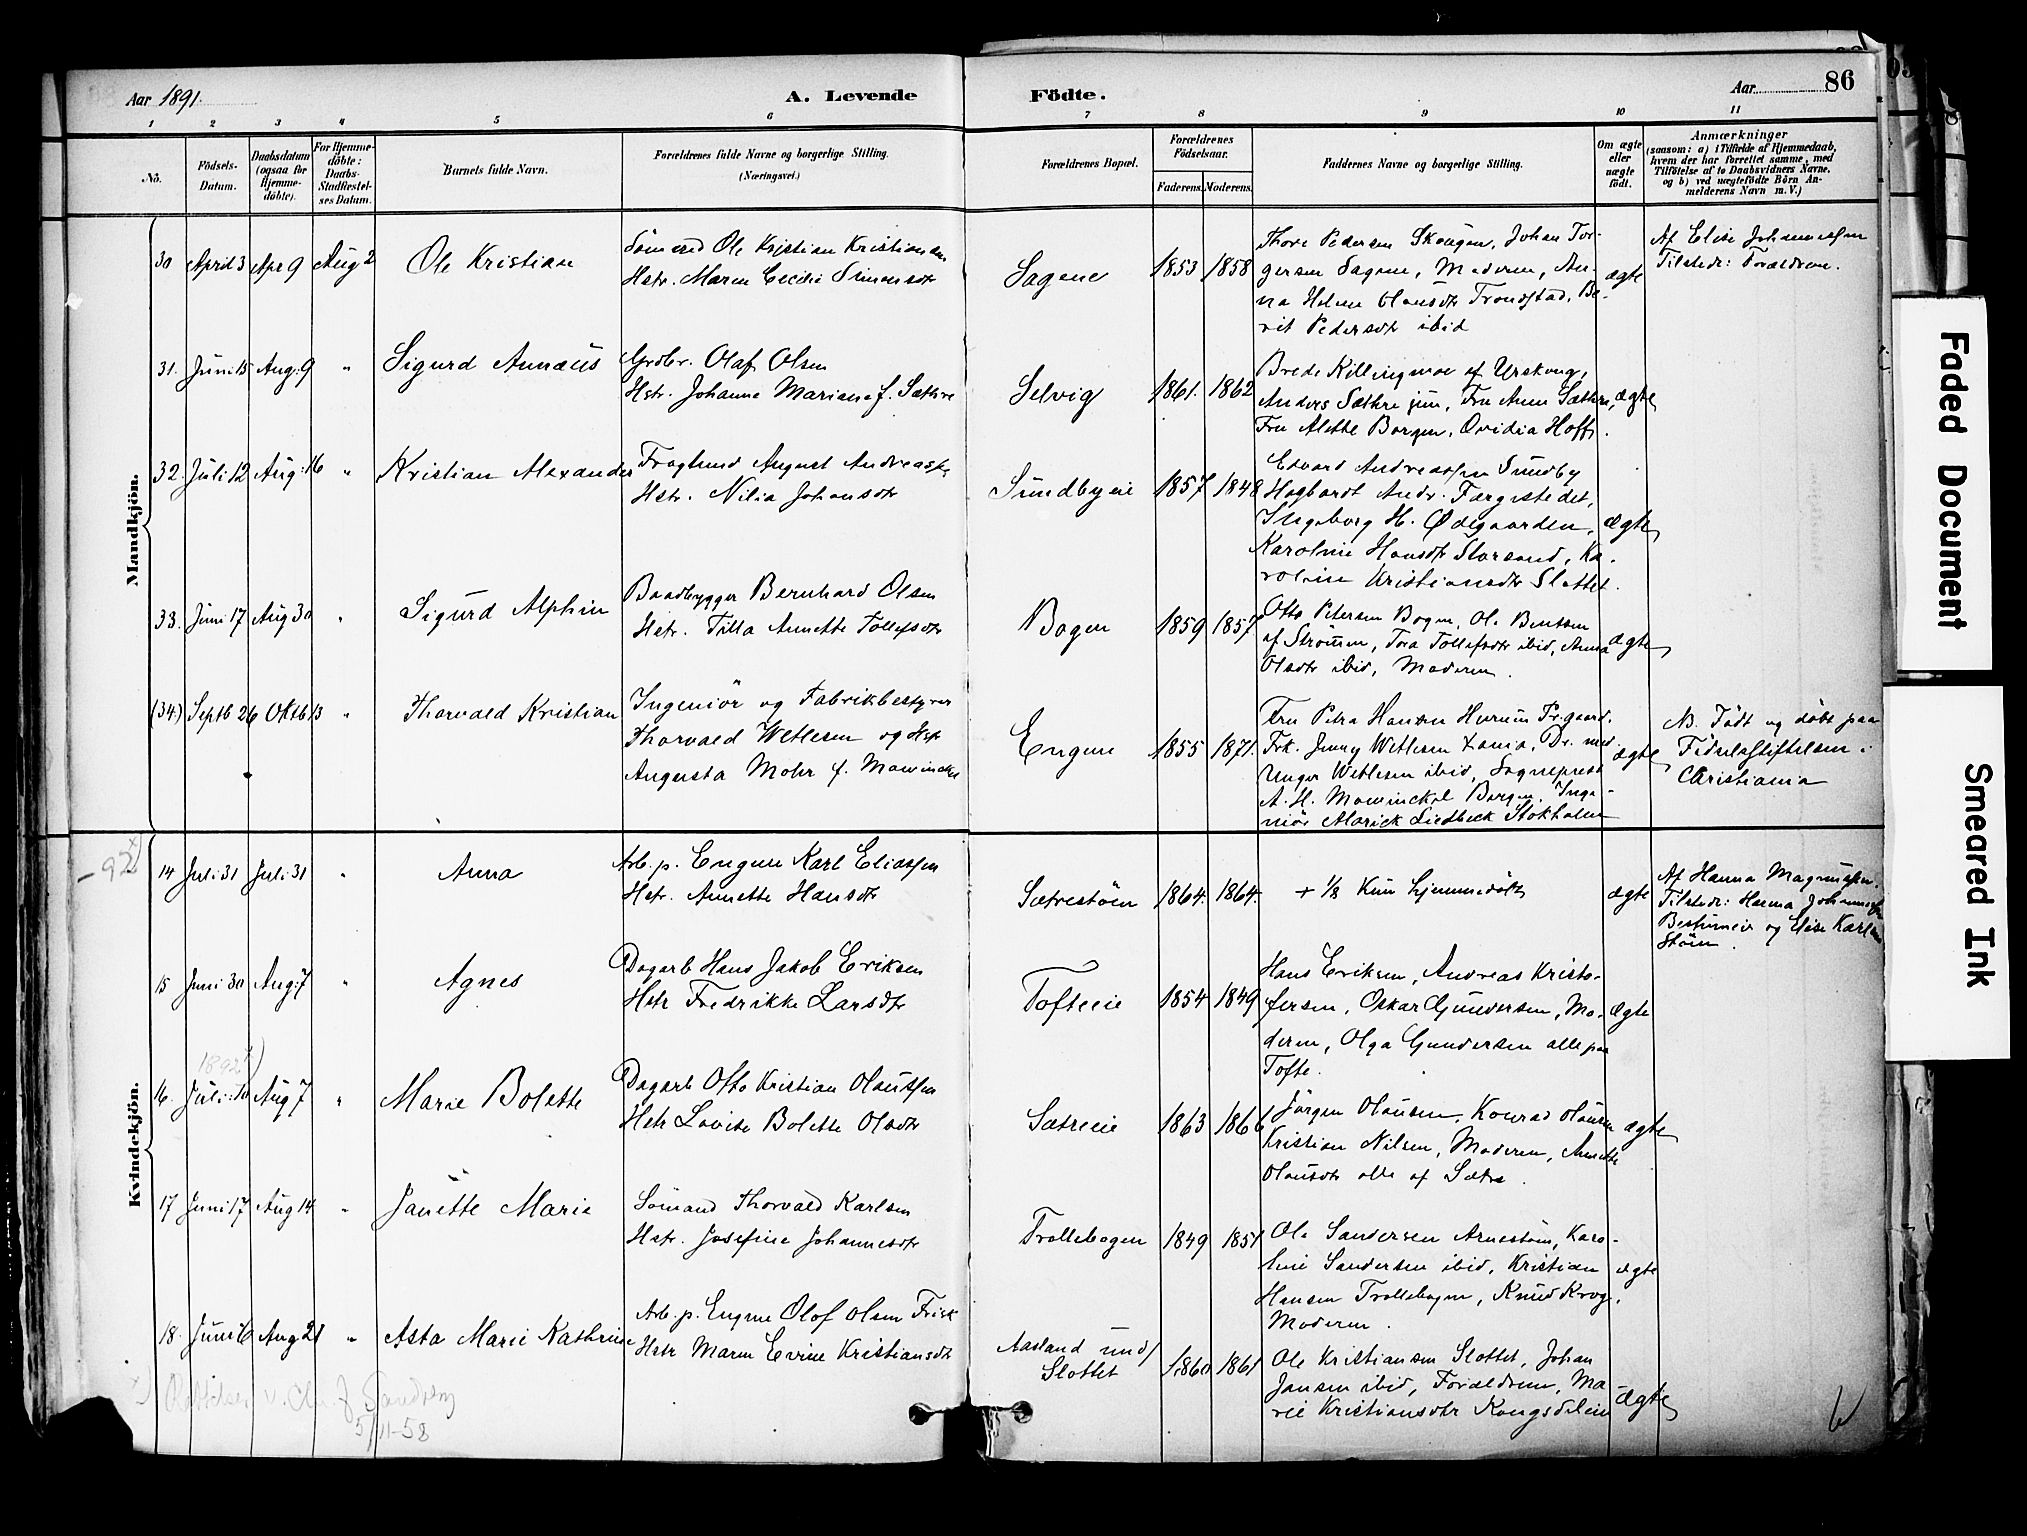 86
Aar 1891.
A. Levende
Födte.
Aar
1 2 3 4 5 6 7 8 9 10 11
No.
Födsels-Datum.
Daabsdatum (ogsaa for Hjemme-döbte).
For Hjemme-döbte: Daabs-Stadfæstel-ses Datum.
Barnets fulde Navn.
Forældrenes fulde Navne og borgerlige Stilling.
(Næringsvei.)
Forældrenes Bopæl.
Forældrenes Födselsaar.
Faderens. Moderens.
Faddernes Navne og borgerlige Stilling.
Om ægte eller uægte födt.
Anmærkninger
(saasom: a) i Tilfælde af Hjemmedaab,
hvem der har forrettet samme, med
Tilföielse af to Daabsvidners Navne,
og b) ved uægtefödte Börn An-
melderens Navn m. V.)
Mandkjön.
30 April 3 Apr 9 Aug 2 Ole Kristian
Sömand Ole Kristian Kristiansen
Hstr. Maren Cecilie Simensdtr
Sagene 1853 1858
Thore Pedersen Skougen, Johan Tor-
gersen Sagene, Moderen, An-
na Helene Olausdtr Trondstad, Be-
rit Pedersdtr ibid
ægte
Af Elise Johannessen
Tilstede: Forældrene.
31. Juni 15 Aug. 9 " Sigurd Annæus
Grdbr. Olaf Olsen
Hstr. Johanne Mariane f. Sæthre
Selvig 1861. 1862
Brede Killingmoe af Urskoug,
Anders Sæthre jun, Fru Anne Sæthre,
Fru Alethe Borgen, Ovidia Hoff.
ægte
32. Juli 12 Aug. 16 " Kristian Alexander
August Andreassen
Hstr. Nilia Johansdtr
Sundbyeie 1857 1848
Edvard Andreassen Sundby
Hagbardt Andr. Færgestedet,
Ingeborg H. Ødegaarden,
Karoline Hansdtr Storsand, Ka-
roline Kristiansdtr Slottet.
ægte
33. Juni 17 Aug 30 " Sigurd Alphin
Baadbygger Bernhard Olsen
Hstr. Tilla Annette Tollefsdtr
Bogen 1859 1857
Otto Petersen Bogen, Ol. Bentsen
af Strømmen, Tora Tollefsdtr ibid, Anna
Olsdtr ibid, Moderen.
ægte
(34.) Septb 26 Oktb 13 " Thorvald Kristian
Ingeniör og Fabrikbestyrer
Thorvald Wetlesen og Hstr
Augusta Mohr f. Mowinckel
Engene 1855 1871.
Fru Petra Hansen Hurum Pr.gaard.
Frk. Jenny Wetlesen Xania, Dr. med
Unger Wetlesen ibid, Sogneprest
A. H. Mowinckel Bergen. Inge-
niör Alarick Liedbeck Stokholm
ægte
NB. Født og døbt paa
Fødselsstiftelsen i
Christiania
Kvindekjön.
- 92 x
14 Juli 31 Juli 31 " Anna
Arb. p. Engene Karl Eliassen
Hstr. Annette Hansdtr
Sætrestöen 1864. 1864.
+ 1/8 Kun hjemmedöbt
ægte
Af Hanna Magnussen.
Tilstede: Hanna Johannessen
Bestumeie og Elise Karlsen
Stöen.
15 Juni 30 Aug. 7 " Agnes
Dagarb Hans Jakob Eriksen
Hstr Fredrikke Larsdtr
Tofteeie 1854 1849
Hans Eriksen, Andreas Kristo-
fersen, Oskar Gundersen, Mo-
deren, Olga Gundersen alle paa
Tofte.
ægte
1892 x)
16. Juli 10 Aug 7 " Marie Bolette
Dagarb Otto Kristian Olaussen
Hstr Lovise Bolette Olsdtr
Sætreeie 1863 1866
Jörgen Olausen, Konrad Olausen
Kristian Nilsen, Moderen, Annette
Olausdtr alle af Sætre.
ægte
17 Juni 17 Aug 14 " Janette Marie
Sömand Thorvald Karlsen
Hstr. Josefine Johannesdtr
Trollebogen 1849 1851
Ole Sandersen Arnestöen, Karo-
line Sandersen ibid, Kristian
Hansen Trollebogen, Knud Krog,
Moderen.
ægte
18. Juni 6 Aug 21 " Asta Marie Kathrine
Arb. p. Engene Olof Olsen Frisk
Hstr Maren Evine Kristiansdtr
Aasland und/
Slottet 1860 1861
Ole Kristiansen Slottet, Johan
Jansen ibid, Forældrene, Ma-
rie Kristiansdtr Kongsdelene
ægte
x) Rettelser v.
5/11-58
Faded Document
Smeared Ink